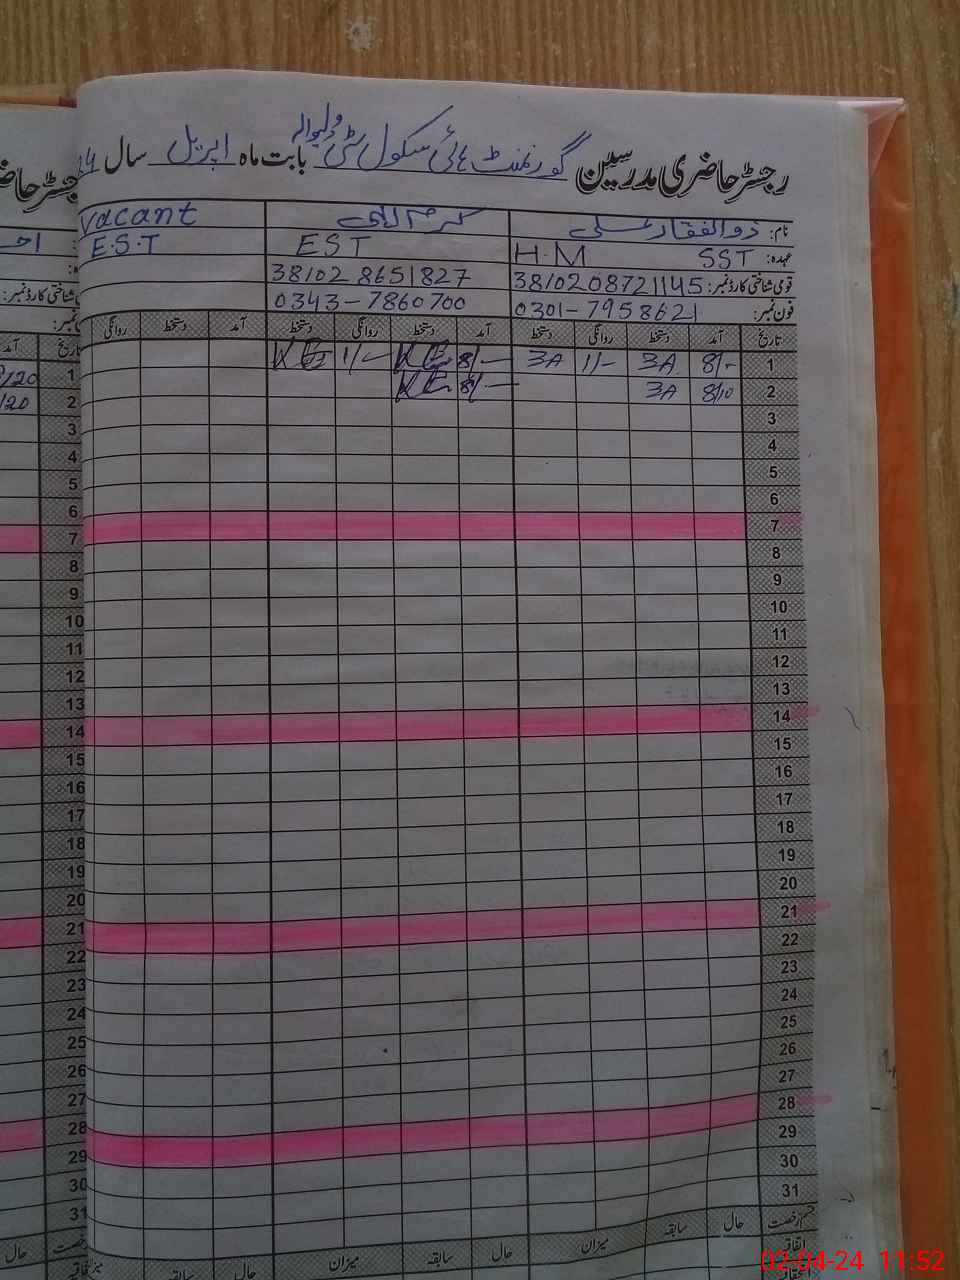 رجسٹر حاضری مدرسین گورنمنٹ ہائی سکول بابت ماہ اپریل سال 24
نام: ذوالفقار علی کرم الہی Vacant
عہدہ: SST H.M EST E.S.T
قومی شناختی کارڈ نمبر: 3810208721145 38102 8651827
فون نمبر: 0301-7958621 0343-7860700
تاریخ آمد دستخط روانگی دستخط آمد دستخط روانگی دستخط آمد دستخط روانگی
1 8/- ZA 1/- ZA 8/- KE 1/- KE 1
2 8/10 ZA 8/- KE 2
3 3
4 4
5 5
6 6
7 7
8 8
9 9
10 10
11 11
12 12
13 13
14 14
15 15
16 16
17 17
18 18
19 19
20 20
21 21
22 22
23 23
24 24
25 25
26 26
27 27
28 28
29 29
30 30
31 31
حال سابقہ میزان حال سابقہ میزان حال
اتفاقیہ
02-04-24 11:52